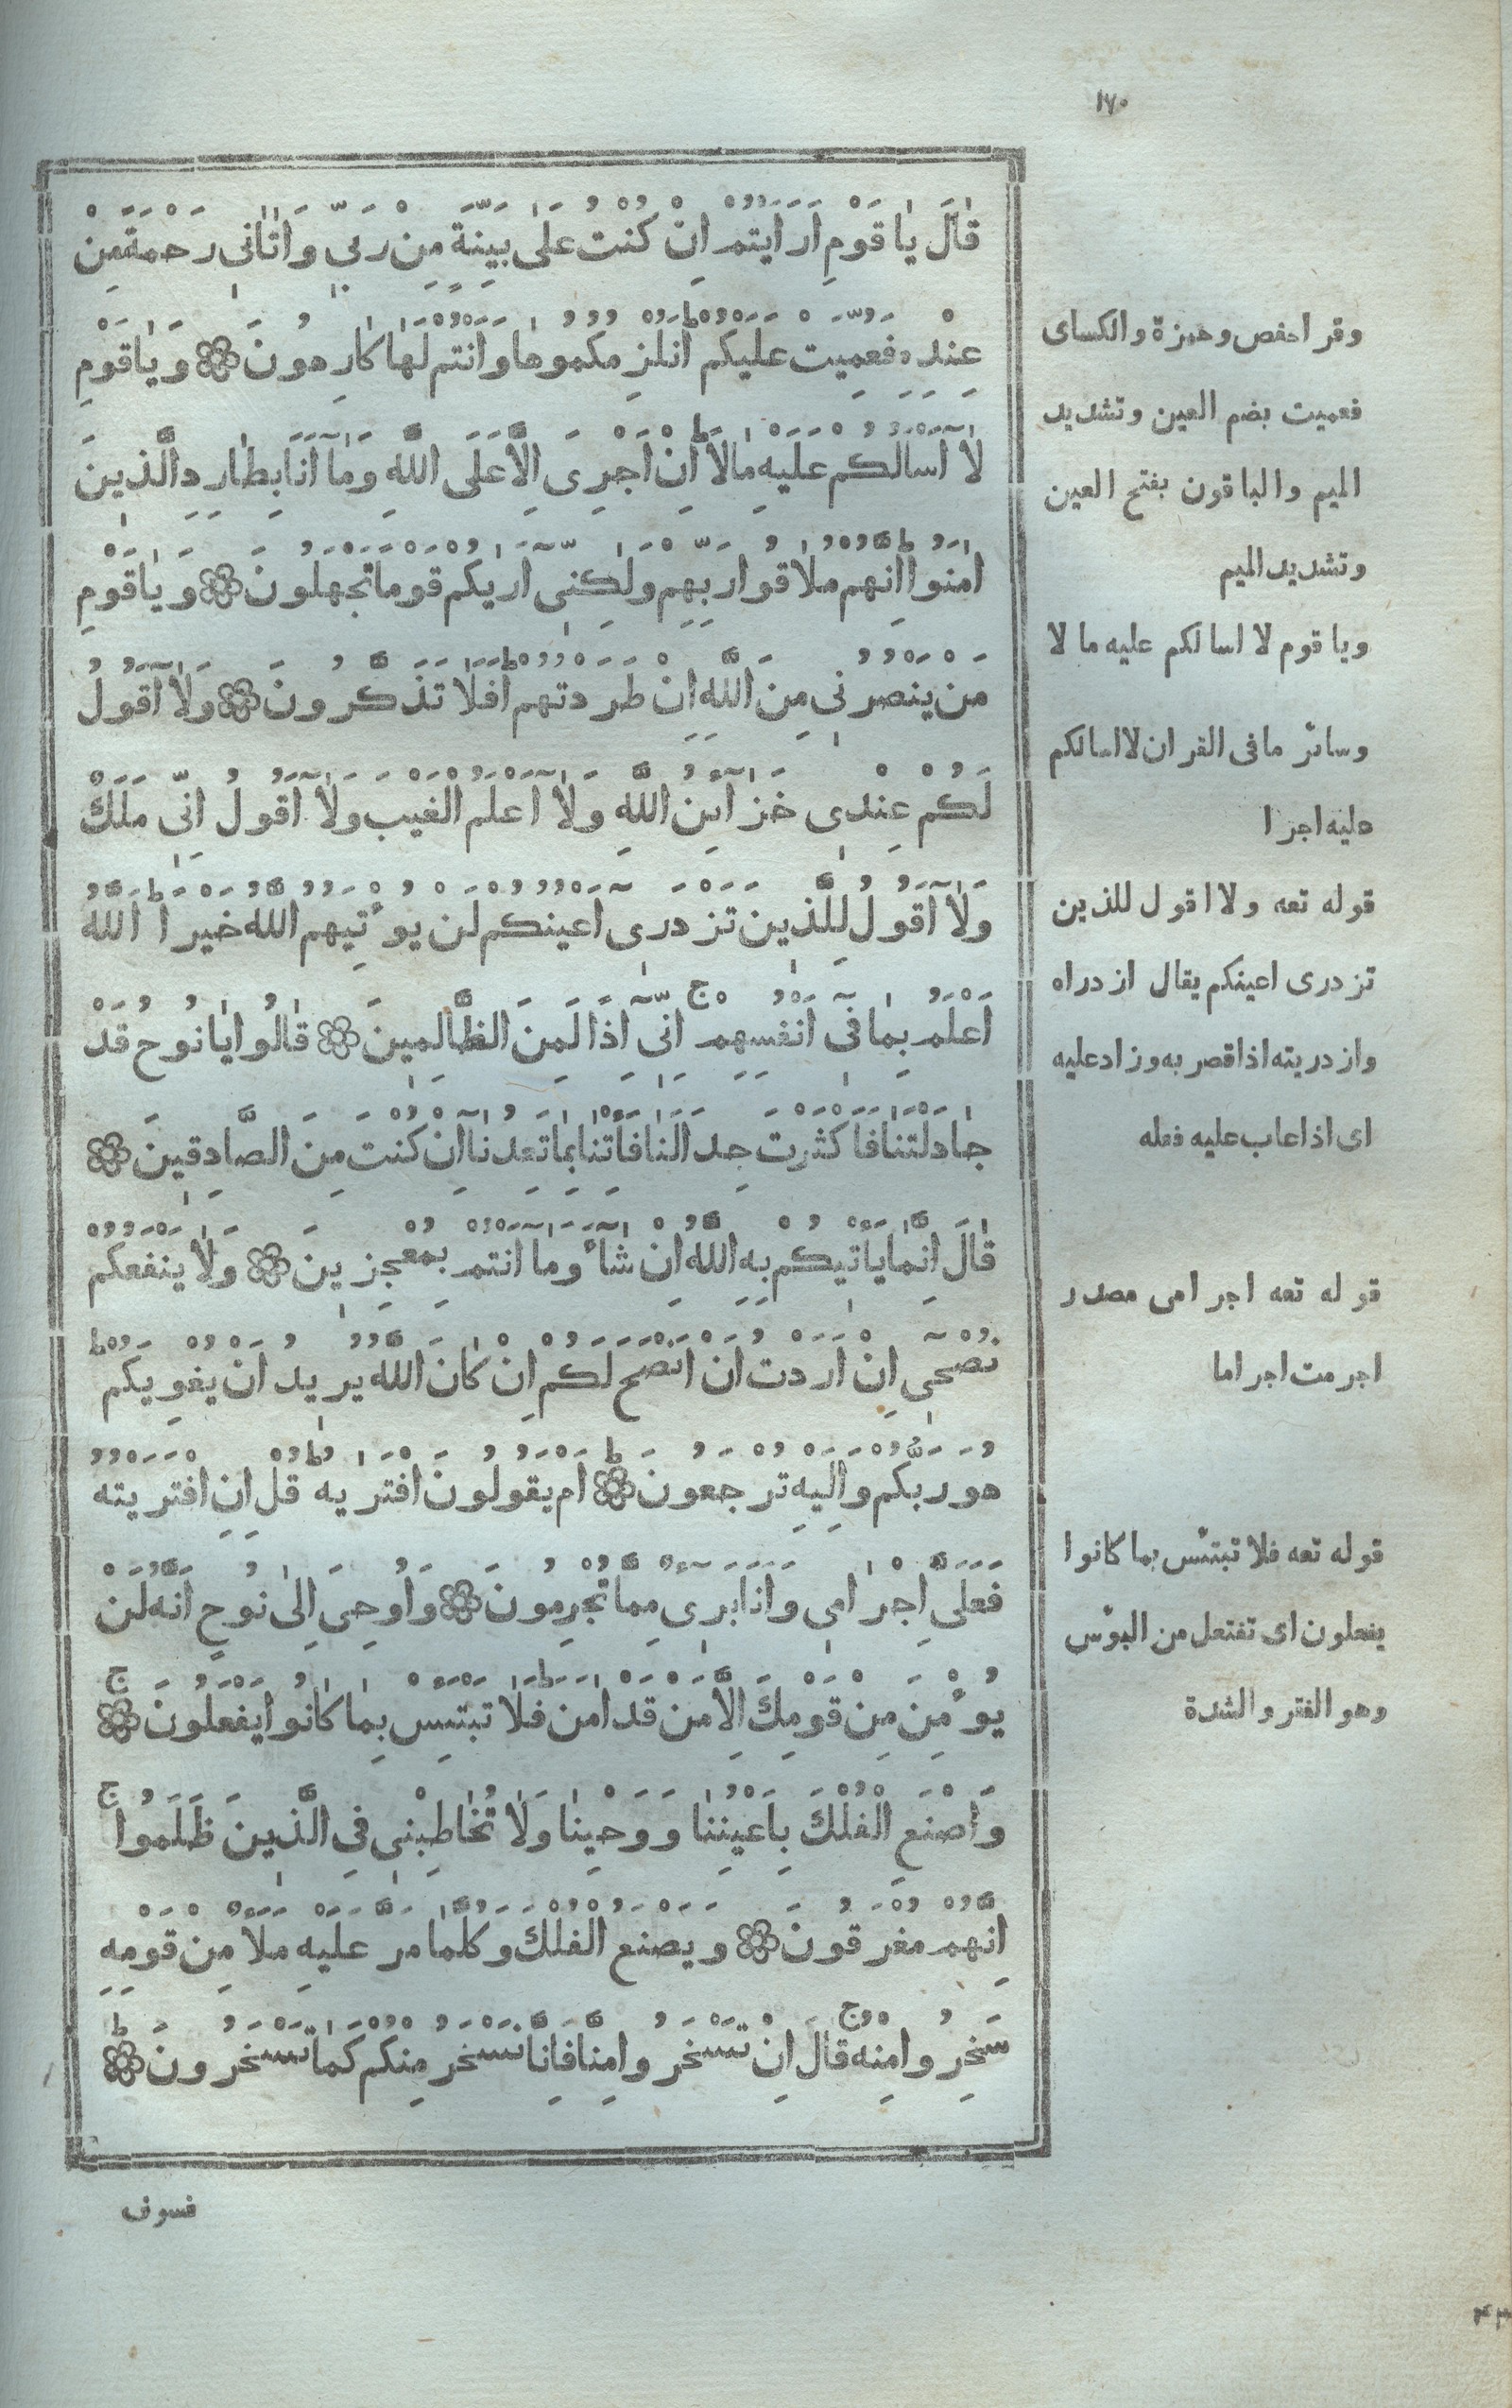 ١٧٠
قَالَ يَا قَوْمِ اَرَاَيْتُمْ اِنْ كُنْتُ عَلٰى بَيِّنَةٍ مِنْ رَبِّى وَاٰتَانِى رَحْمَةً مِنْ
عِنْدِهِ فَعُمِّيَتْ عَلَيْكُمْ ط اَنُلْزِمُكُمُوهَا وَاَنْتُمْ لَهَا كَارِهُونَ ۞ وَيَا قَوْمِ
لَا اَسْاَلُكُمْ عَلَيْهِ مَالًا ط اِنْ اَجْرِىَ اِلَّا عَلَى اللَّهِ وَمَا اَنَا بِطَارِدِ الَّذِينَ
اٰمَنُوا ط اِنَّهُمْ مُلَاقُوا رَبِّهِمْ وَلَكِنِّى اَرَيكُمْ قَوْمًا تَجْهَلُونَ ۞ وَيَا قَوْمِ
مَنْ يَنْصُرُنِى مِنَ اللَّهِ اِنْ طَرَدْتُهُمْ ط اَفَلَا تَذَكَّرُونَ ۞ وَلَا اَقُولُ
لَكُمْ عِنْدِى خَزَآئِنُ اللَّهِ وَلَا اَعْلَمُ الْغَيْبَ وَلَا اَقُولُ اِنِّى مَلَكٌ
وَلَا اَقُولُ لِلَّذِينَ تَزْدَرِى اَعْيُنُكُمْ لَنْ يُؤْتِيَهُمُ اللَّهُ خَيْرًا ط اَللَّهُ
اَعْلَمُ بِمَا فِى اَنْفُسِهِمْ ج اِنِّى اِذًا لَمِنَ الظَّالِمِينَ ۞ قَالُوا يَا نُوحُ قَدْ
جَادَلْتَنَا فَاَكْثَرْتَ جِدَالَنَا فَاْتِنَا بِمَا تَعِدُنَا اِنْ كُنْتَ مِنَ الصَّادِقِينَ ۞
قَالَ اِنَّمَا يَاْتِيكُمْ بِهِ اللَّهُ اِنْ شَآءَ وَمَا اَنْتُمْ بِمُعْجِزِينَ ۞ وَلَا يَنْفَعُكُمْ
نُصْحِى اِنْ اَرَدْتُ اَنْ اَنْصَحَ لَكُمْ اِنْ كَانَ اللَّهُ يُرِيدُ اَنْ يُغْوِيَكُمْ ط
هُوَ رَبُّكُمْ وَاِلَيْهِ تُرْجَعُونَ ط ۞ اَمْ يَقُولُونَ افْتَرَيهُ ط قُلْ اِنِ افْتَرَيْتُهُ
فَعَلَىَّ اِجْرَامِى وَاَنَا بَرِىءٌ مِمَّا تُجْرِمُونَ ۞ وَاُوحِىَ اِلٰى نُوحٍ اَنَّهُ لَنْ
يُؤْمِنَ مِنْ قَوْمِكَ اِلَّا مَنْ قَدْ اٰمَنَ ط فَلَا تَبْتَئِسْ بِمَا كَانُوا يَفْعَلُونَ ج ۞
وَاصْنَعِ الْفُلْكَ بِاَعْيُنِنَا وَوَحْيِنَا وَلَا تُخَاطِبْنِى فِى الَّذِينَ ظَلَمُوا ج
اِنَّهُمْ مُغْرَقُونَ ۞ وَيَصْنَعُ الْفُلْكَ وَكُلَّمَا مَرَّ عَلَيْهِ مَلَاٌ مِنْ قَوْمِهِ
سَخِرُوا مِنْهُ ج قَالَ اِنْ تَسْخَرُوا مِنَّا فَاِنَّا نَسْخَرُ مِنْكُمْ كَمَا تَسْخَرُونَ ط ۞
فسوف
وقرا حفص وحمزة والكساى
فعميت بضم العين وتشديد
الميم والباقون بفتح العين
وتشديد الميم
ويا قوم لا اسالكم عليه مالا
وسائر ما فى القران لا اسالكم
عليه اجرا
قوله تعه ولا اقول للذين
تزدرى اعينكم يقال ازدراه
وازدريته اذا قصر به وزاد عليه
اى اذا عاب عليه فعله
قوله تعه اجرامى مصدر
اجرمت اجراما
قوله تعه فلا تبتئس بما كانوا
يفعلون اى تفتعل من البؤس
وهو الفقر والشدة